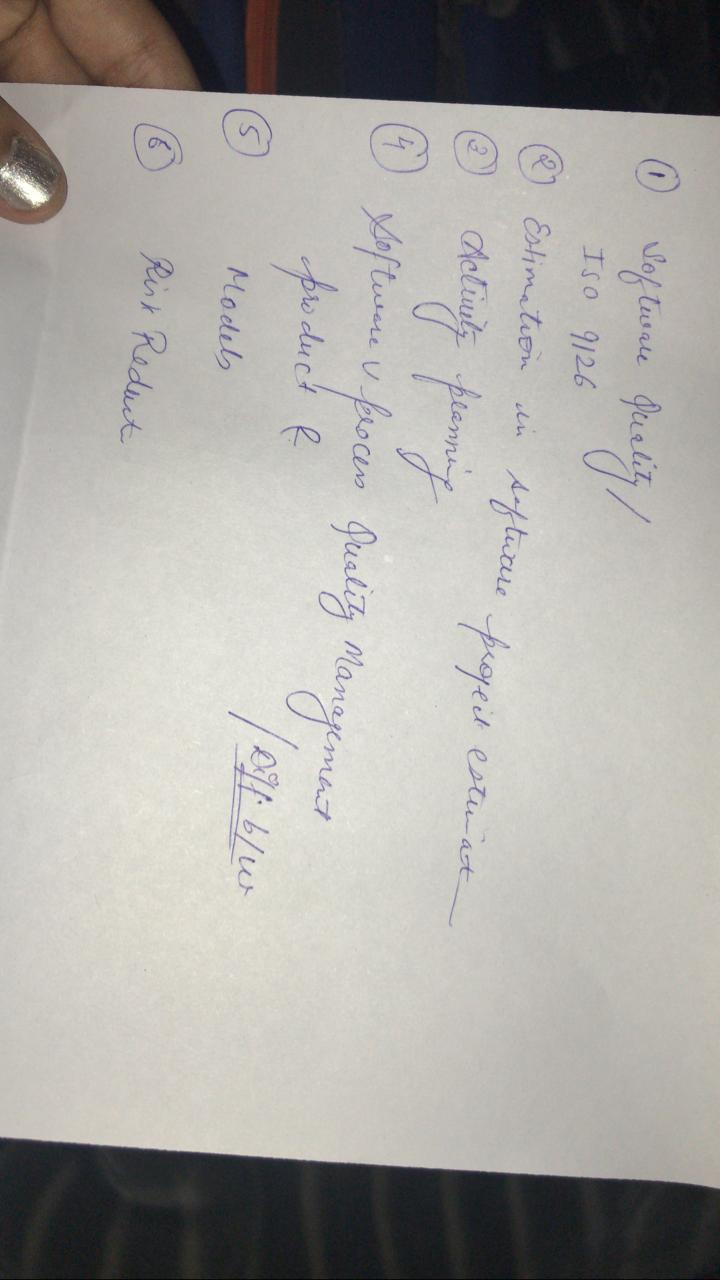 ① Software Quality /
ISO 9126
② Estimation in software project estimat
③ Activity planning
④ Software process Quality Management
product &
⑤ Models / Diff. b/w
⑥ Risk Reduct